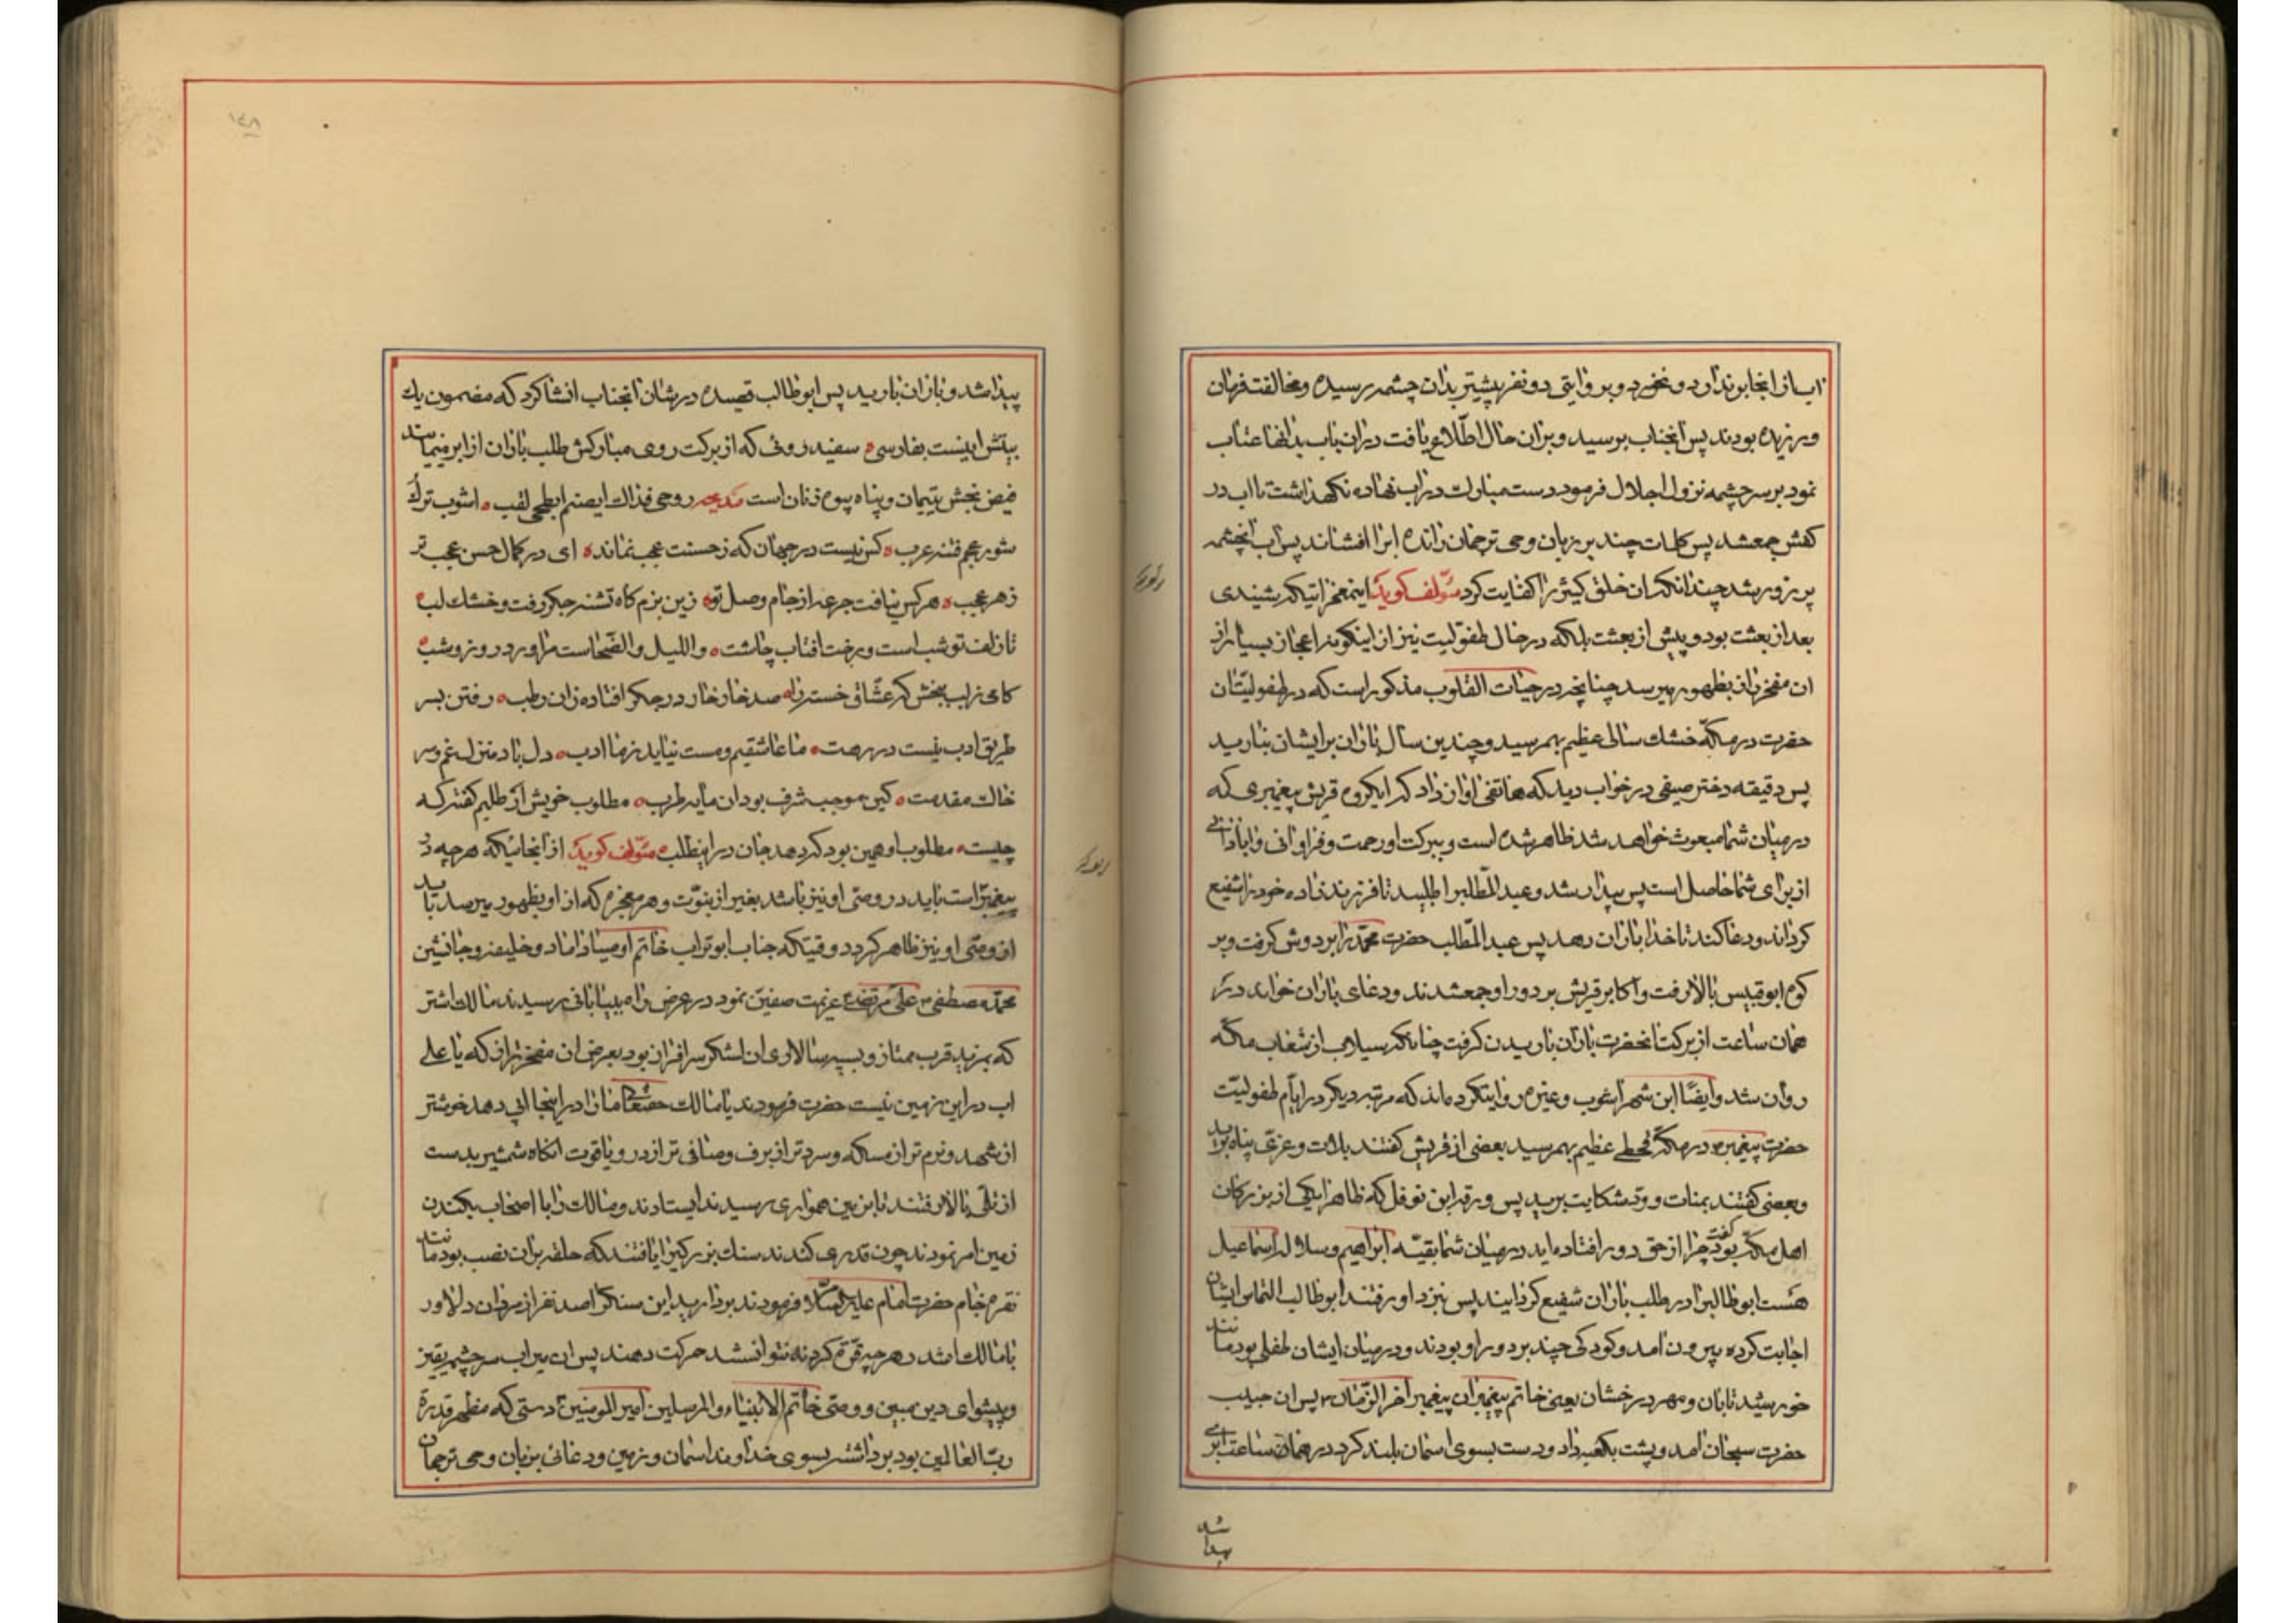 اب از انجا بر ندارد و نخورد و بروایتی دو نفر پیشتر بدان چشمه رسیده و مخالفت فرمان
ورزیده بودند پس انجناب برسید و بران حال اطلاع یافت دران باب بدانها عتاب
نمود بر سر چشمه نزول اجلال فرمود دست مبارك در اب نهاده نگهداشت تا اب در
کفش جمعشد پس کلمات چند بر زبان وحی ترجمان رانده انرا افشاند پس اب انچشمه
پر زور شد چندانکه ان خلق کثیر را کفایت کرد مؤلف کوید اینمعجزاتیکه شنیدی
بعد از بعثت بود و پیش از بعثت بلکه در حال طفولیت نیز از اینکونه اعجاز بسیار از
ان مفخر راز بظهور میرسد چنانچه در حیات القلوب مذکور است که در طفولیت ان
حضرت در مکه خشك سالی عظیم بهمرسید و چندین سال باران بر ایشان نبارید
پس دقیقه دختر صیفی در خواب دید که هاتفی اواز داد که ایکروه قریش پیغمبری که
در میان شما مبعوث خواهد شد ظاهر شده است و ببرکت او رحمت و فراوانی و ابادانی
از برای شما حاصل است پس بیدار شد و عبد المطلب را طلبید تا فرزند زاده خود را شفیع
کرداند و دعا کند تا خدا باران دهد پس عبد المطلب حضرت محمد را بر دوش کرفت و بر
کوه ابو قبیس بالا رفت و اکابر قریش بر دور او جمعشدند و دعای باران خواند در
همان ساعت از برکت انحضرت باران باریدن کرفت چنانکه سیلاب از شعاب مکه
روان شد و ایضًا ابن شهر اشوب و غیره روایتکرده‌اند که مرتبه دیکر در ایام طفولیت
حضرت پیغمبر در مکه قحطی عظیم بهمرسید بعضی از قریش کفتند بلات و عزی پناه برید
و بعضی کفتند بمنات و ود شکایت برید پس ورقه ابن نوفل که ظاهرا یکی از بزرکان
اهل مکه بود کفت چرا از حق دور افتاده‌اید در میان شما بقیه ابراهیم و سلاله اسماعیل
هست ابو طالب را در طلب باران شفیع کردانید پس بنزد او رفتند ابو طالب التماس ایشان
اجابت کرده بیرون امد و کودکی چند بر دور او بودند و در میان ایشان طفلی بود مانند
خورشید تابان و مهر درخشان یعنی خاتم پیغمبران پیغمبر اخر الزمان پس ان حبیب
حضرت سبحان امد و پشت بکعبه داد و دست بسوی اسمان بلند کرد در همان ساعت ابری
پیدا شد
پیدا شد و باران بارید پس ابو طالب قصیده در شان انجناب انشا کرد که مضمون یك
بیتش اینست بفارسی سفید روئی که از برکت روی مبارکش طلب باران از ابر مینمایند
فیض بخش یتیمان و پناه بیوه زنان است مدیحه روحی فداك ایصنم ابطحی لقب اشوب ترك
شور عجم فتنه عرب کس نیست در جهان که ز حسنت عجب نماند ای در کمال حسن عجب تر
ز هر عجب هر کس نیافت جرعه از جام وصل تو زین بزم کاه تشنه جکر رفت و خشك لب
تا زلف تو شب است و رخت افتاب چاشت و اللیل و الضحاست مرا ورد روز و شب
کامی ز لب ببخش که عشاق خسته را صد خار خار در جکر افتاده زان رطب رفتن بسر
طریق ادب نیست در رهت ما عاشقیم و مست نیاید ز ما ادب دل باد منزل غم و سر
خاك مقدمت کین موجب شرف بود ان مایه طرب مطلوب خویش از طلبم کفته که
چیست مطلوب او همین بود که دهد جان در اینطلب مؤلف کوید از انجائیکه هر چه در
پیغمبر است باید در وصی او نیز باشد بغیر از نبوت و هر معجزه که از او بظهور میرسد باید
از وصی او نیز ظاهر کردد وقتیکه جناب ابو تراب خاتم اوصیا داماد و خلیفه و جانشین
محمد مصطفی علی مرتضی عزیمت صفین نمود در عرض راه ببیابانی رسیدند مالك اشتر
که بمزید قرب ممتاز و بسپه سالاری ان لشکر سرافراز بود بعرض ان مفخر راز که یا علی
اب در این زمین نیست حضرت فرمودند یا مالك حقتعالی ما را در اینجا ابی دهد خوشتر
از شهد و نرم تر از مسکه و سرد تر از برف و صافی تر از در و یاقوت انکاه شمشیر بدست
از تلی بالا رفتند تا بزمین همواری رسیدند ایستادند و مالك را با اصحاب بکندن
زمین امر نمودند چون قدری کندند سنك بزرکی را یافتند که حلقه بران نصب بود مانند
نقره خام حضرت امام علیه السلام فرمودند بردارید این سنك را صد نفر از مردان دلاور
با مالك امتد و هر چه قوة کردند نتوانستند حرکت دهند پس ان میراب سرچشمه یقین
و پیشوای دین مبین و وصی خاتم الانبیاء و المرسلین امیر المومنین دستی که مظهر قدرة
رب العالمین بود برداشته بسوی خداوند اسمان و زمین و دعائی بزبان وحی ترجمان